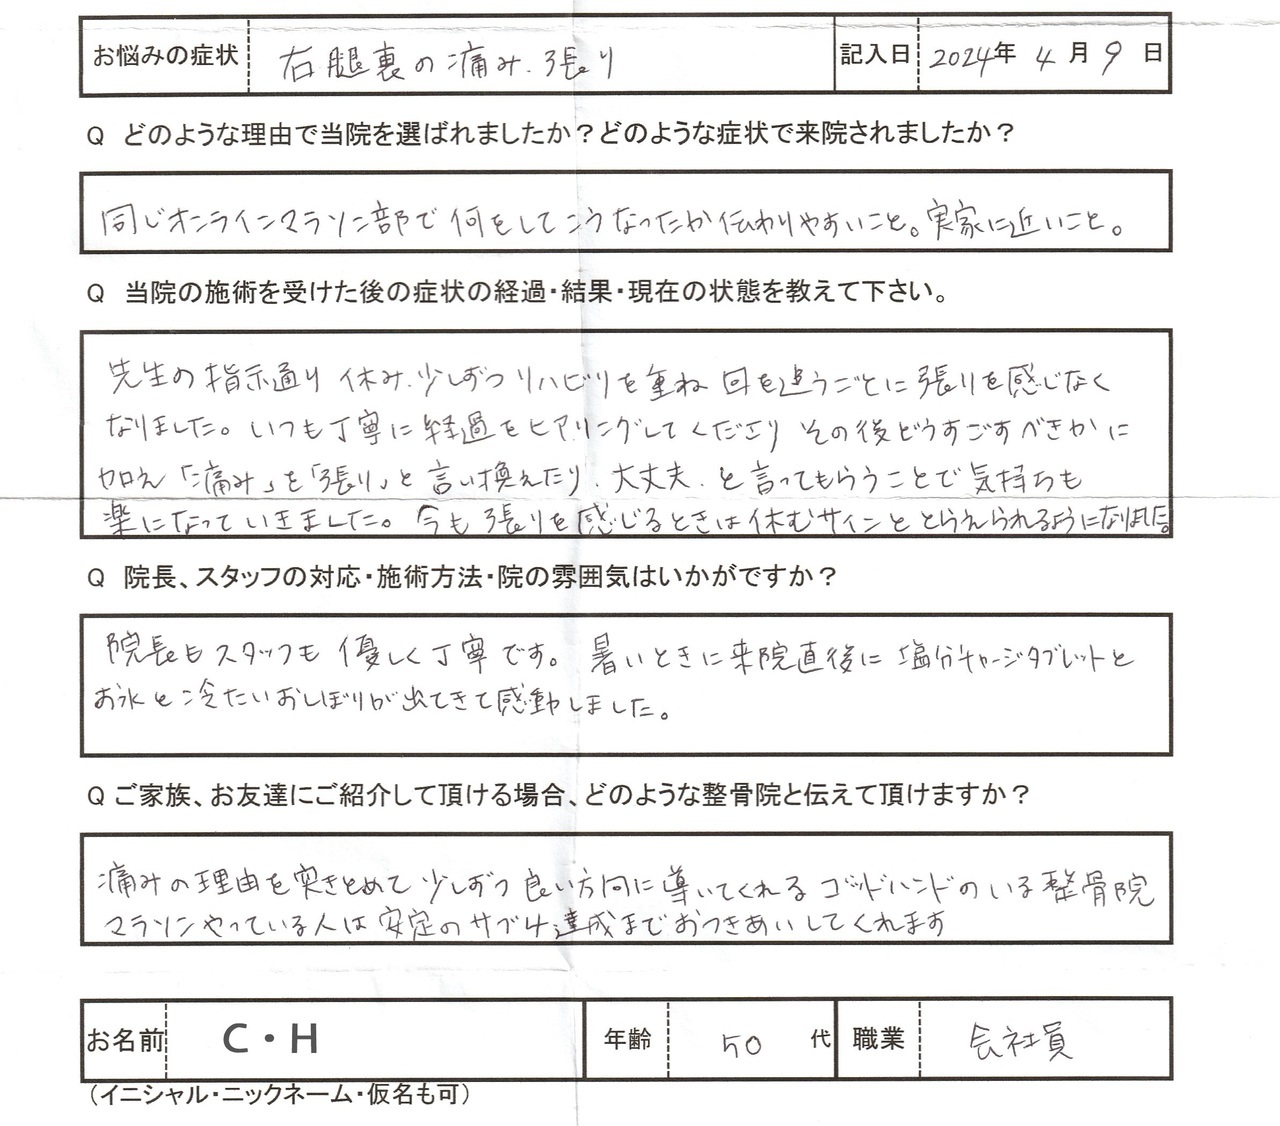 お悩みの症状 右腿裏の痛み.張り 記入日 2024年 4月 9日
Q どのような理由で当院を選ばれましたか？どのような症状で来院されましたか？
同じオンラインマラソン部で何をしてこうなったか伝わりやすいこと。実家に近いこと。
Q 当院の施術を受けた後の症状の経過・結果・現在の状態を教えて下さい。
先生の指示通り休み.少しずつリハビリを重ね回を追うごとに張りを感じなく
なりました。いつも丁寧に経過をヒアリングしてくださり その後どうすごすべきかに
加え「痛み」を「張り」と言い換えたり.大丈夫.と言ってもらうことで気持ちも
楽になっていきました。今も張りを感じるときは休むサインととらえられるようになりました。
Q 院長、スタッフの対応・施術方法・院の雰囲気はいかがですか？
院長もスタッフも優しく丁寧です。暑いときに来院直後に塩分チャージタブレットと
お水と冷たいおしぼりが出てきて感動しました。
Q ご家族、お友達にご紹介して頂ける場合、どのような整骨院と伝えて頂けますか？
痛みの理由を突きとめて少しずつ良い方向に導いてくれるゴッドハンドのいる整骨院
マラソンやっている人は安定のサブ4達成までおつきあいしてくれます
お名前 C・H 年齢 50代 職業 会社員
（イニシャル・ニックネーム・仮名も可）